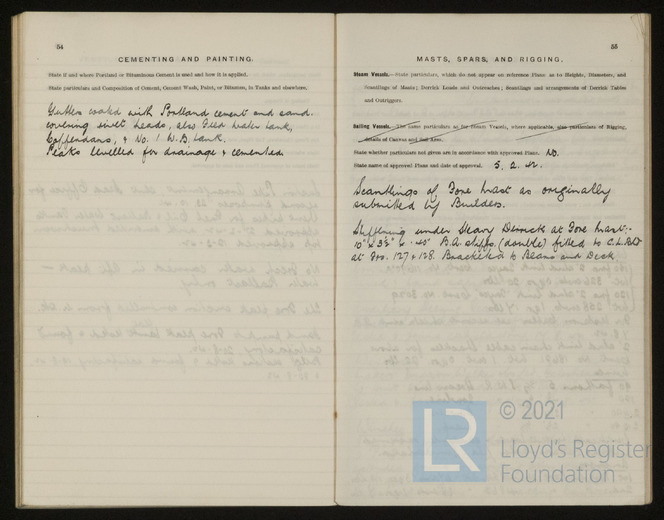 54
CEMENTING AND PAINTING.
State if and where Portland or Bituminous Cement is used and how it is applied.
State particulars and Composition of Cement, Cement Wash, Paint, or Bitumen, in Tanks and elsewhere.
Gutters coated with Portland cement and sand.
covering rivet heads, also Feed water tank,
Cofferdams, & No. 1 W.B. tank.
Peaks levelled for drainage & cemented.
55
MASTS, SPARS, AND RIGGING.
Steam Vessels.—State particulars, which do not appear on reference Plans as to Heights, Diameters, and
Scantlings of Masts; Derrick Loads and Outreaches; Scantlings and arrangements of Derrick Tables
and Outriggers.
Sailing Vessels.—The same particulars as for Steam Vessels, where applicable, also particulars of Rigging,
details of Canvas and Sail Area.
State whether particulars not given are in accordance with approved Plans. No.
State name of approved Plans and date of approval. 5. 2. 42.
Scantlings of Fore Mast as originally
submitted by Builders.
Stiffening under Heavy Derrick at Fore Mast:-
10" x 3½" x .40" B.A. stiffs. (double) fitted to C.L. Bhd
at Frs. 127 & 128. Bracketed to Beams and Deck
© 2021
LR
Lloyd's Register
Foundation